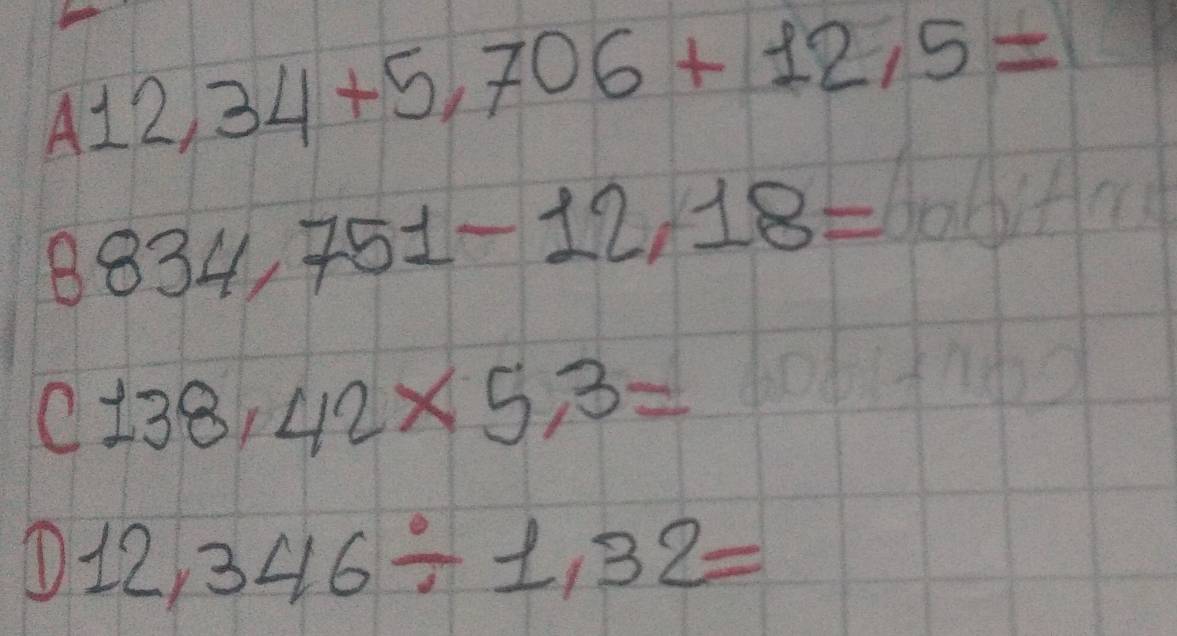 A 12,34 + 5,706 + 12,5 =
B 834,751 - 12,18 =
C 138,42 × 5,3 =
D 12,346 ÷ 1,32 =